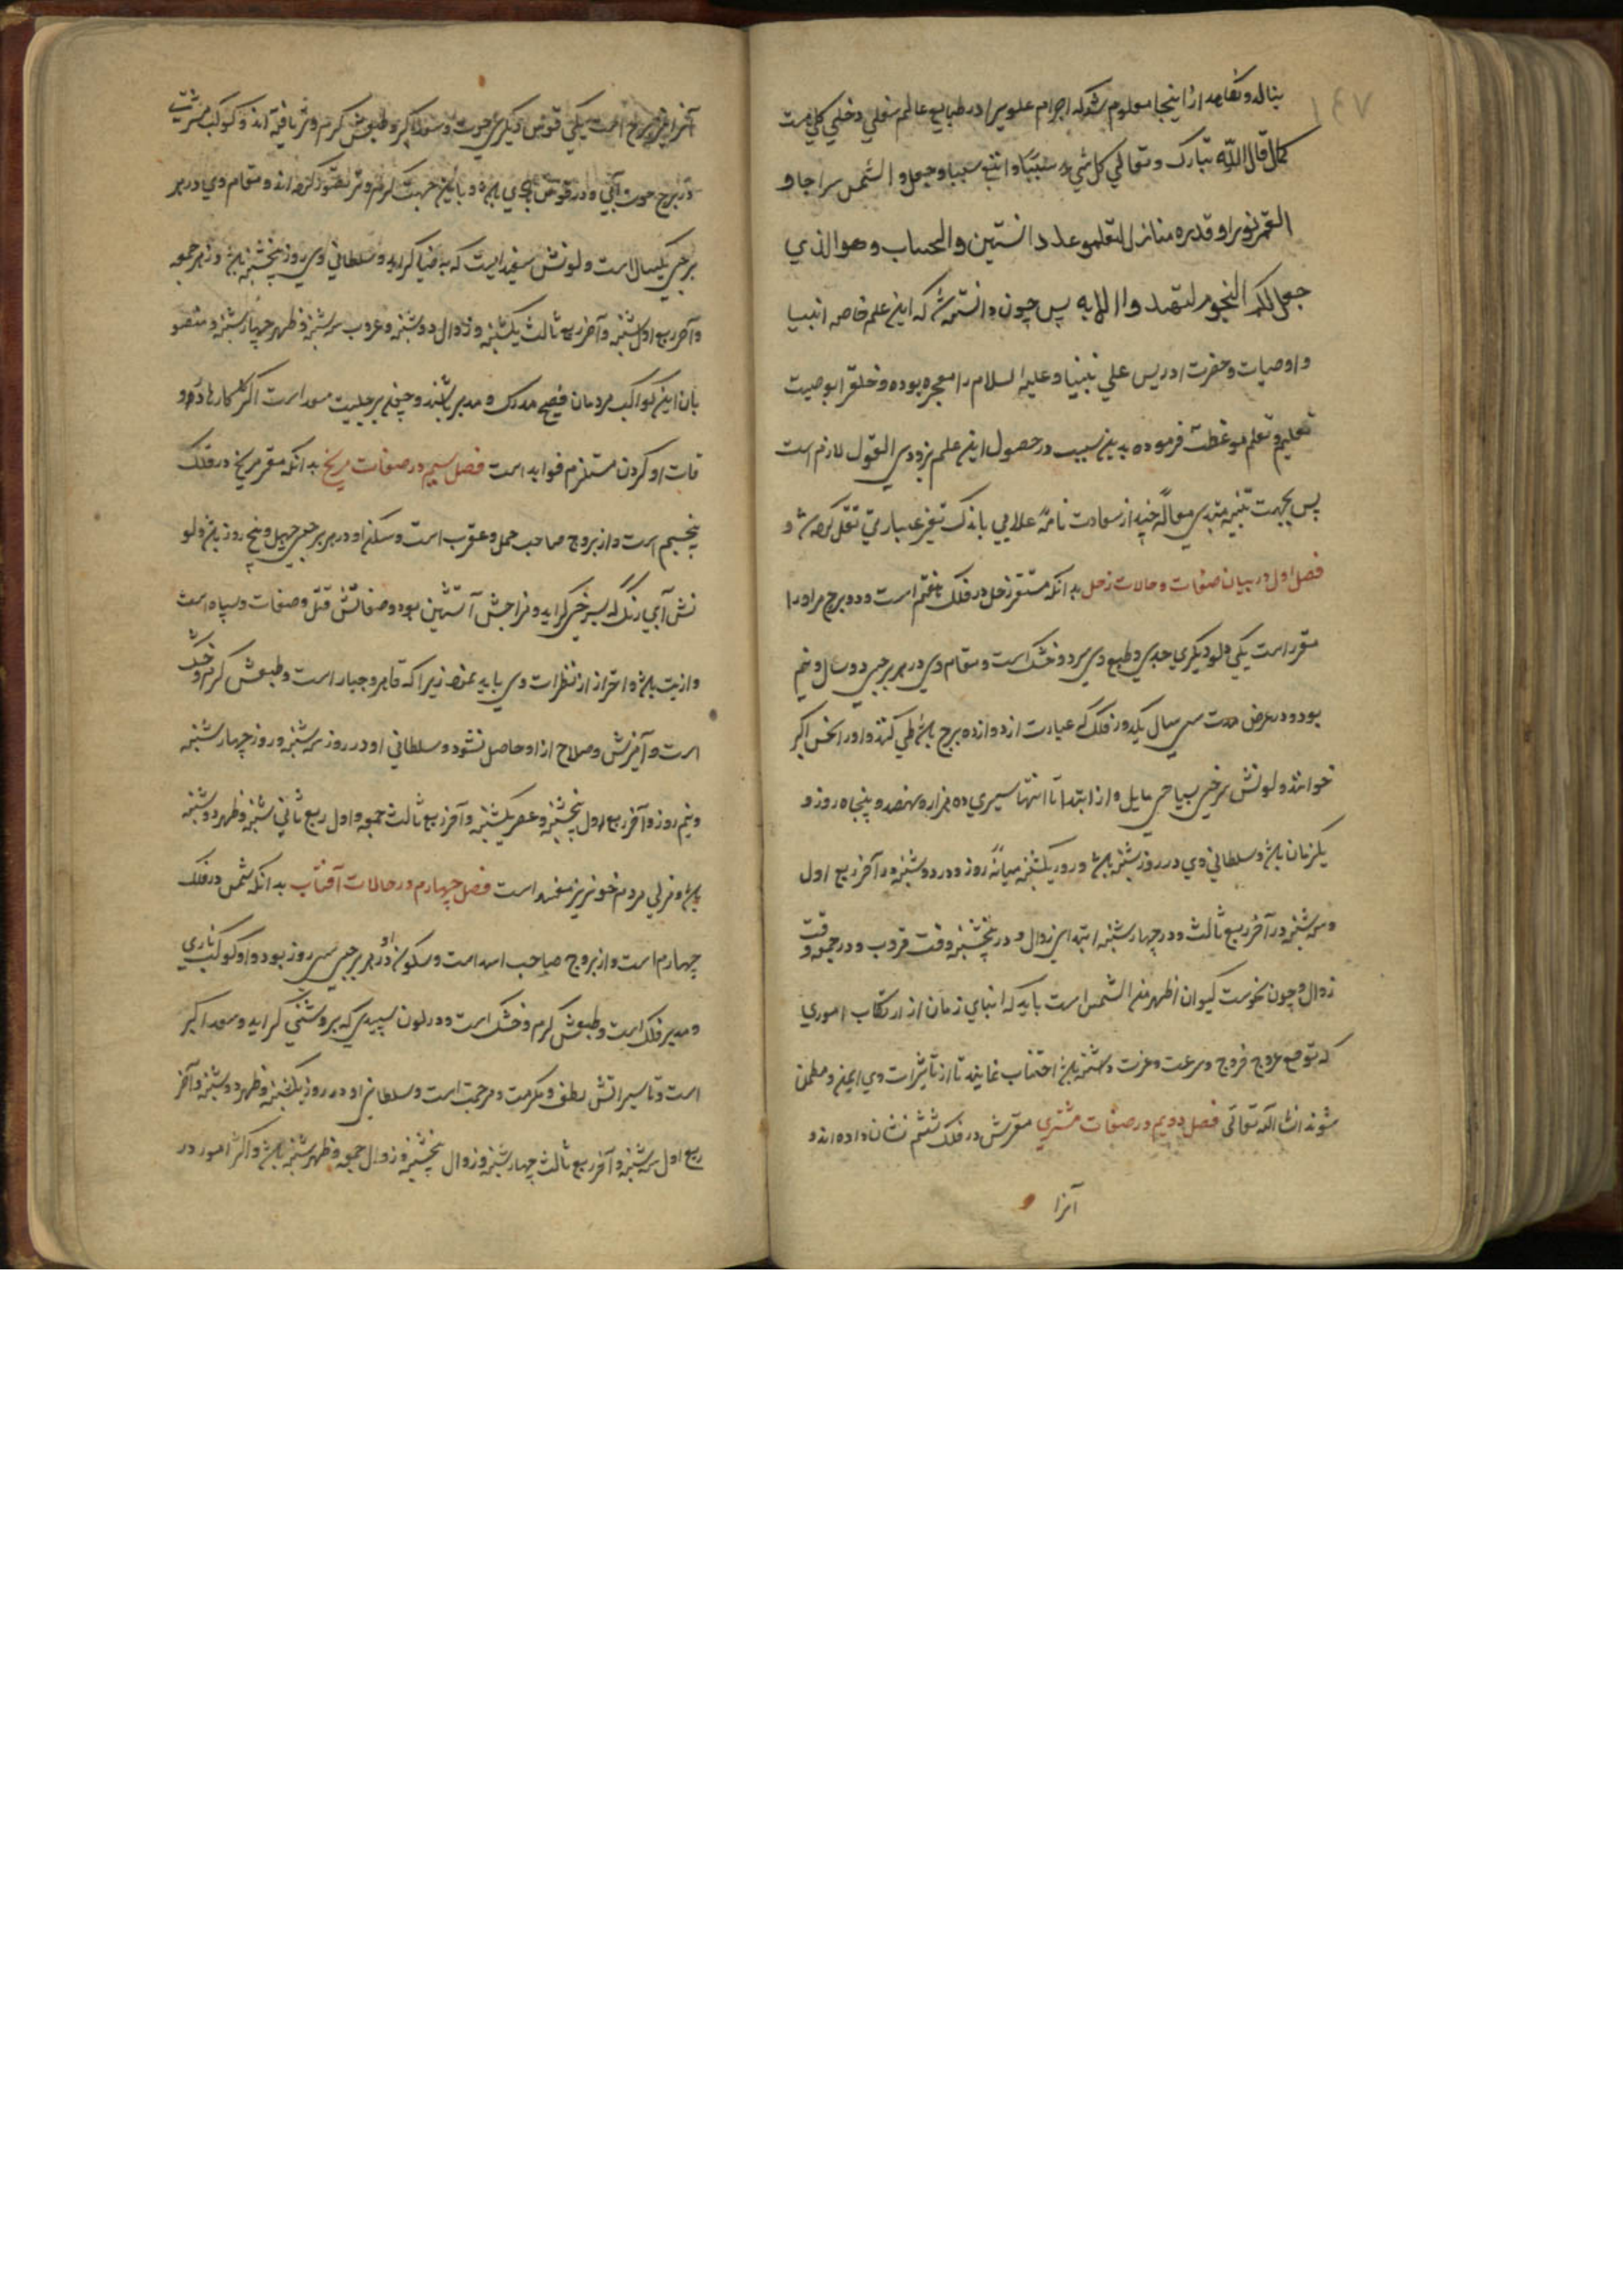 بنالد و بکاهد از اینجا معلوم شد که اجرام علوی را در طبایع عالم سفلی دخلی کلی هست
کما قال الله تبارک و تعالی کل شیء سببا و اتبع سببا و جعل و الشمس سراجا و
القمر نورا و قدره منازل لتعلمو عدد السنین والحساب وهو الذی
جعل لکم النجوم لتهتدوا الایه پس چون دانسته شد که این علم خاصه انبیا
و اوصیاست و حضرت ادریس علی نبینا و علیه السلام را معجزه بوده و خلق را بوصیت
تعلیم و تعلم موعظت فرموده بدین سبب در حصول این علم بزودی القول لازم است
پس بجهت تنبیه مبتدی مقاله چند از سعادت نامه علایی باندک تغیر عبارتی نقل کرده شد و
فصل اول در بیان صفات و حالات زحل بدانکه مستقر زحل در فلک هفتم است و دو برج مر اورا
مقرر است یکی دلو دیگری جدی و طبع وی سرد و خشک است و مقام وی در هر برجی دو سال و نیم
بود و در عرض مدت سی سال یکدور فلک که عبارت از دوازده برج باشد طی کند و اورا نحس اکبر
خوانند و لونش سرخی بسیاهی مایل و از ابتدا تا انتها سیری ده هزار و نهصد و پنجاه روز و
یکزمان باشد و سلطانی وی در روز شنبه باشد و روز یکشنبه میانه روز و در دوشنبه در آخر ربع اول
و سه شنبه در آخر ربع ثالث و در چهارشنبه ابتدای زوال و در پنجشنبه وقت غروب و در جمعه وقت
زوال و چون نحوست کیوان اظهر من الشمس است باید که ابنای زمان از ارتکاب اموری
که توقع عروج فروج و سرعت و عزت و حشمت باشد اجتناب نمایند تا از تأثیرات وی ایمن و مطمئن
شوند انشا الله تعالی فصل دویم در صفات مشتری مقرش در فلک ششم نشان داده اند و
آنرا
آنرا دو برج است یکی قوس دیگری حوت و سعد اکبر و طبعش گرم و تر یافته اند و کوکب مشتریست
در برج حوت آبی و در قوس بادی باشد و باین جهت گرم و تر تصور کرده اند و مقام وی در هر
برجی یکسال است و لونش سفیدیست که به ضیا گراید و سلطانی وی روز پنجشنبه باشد و ظهر جمعه
و آخر ربع اول شنبه و آخر ربع ثالث یکشنبه و زوال دوشنبه و غروب سه شنبه و ظهر چهارشنبه و منصو
بان این کواکب مردمان فصیح مدرک و مدبر باشند و چون برجیس سعد است اکثر کارها در او
قات او کردن مستلزم فواید است فصل سیم در صفات مریخ بدانکه مقر مریخ در فلک
پنجم است و از بروج صاحب حمل و عقرب است و سکن او در هر برجی چهل و پنج روز باشد و لو
نش آبی رنگ که بسرخی گراید و مزاجش آتشین بود و صفاتش قتل و صفات و سپاه است
و اذیت باشد و احتراز از نظرات وی باید نمود زیرا که قاهر و جبار است و طبعش گرم و خشک
است و آمیزش و صلاح از او حاصل نشود و سلطانی او در روز سه شنبه و روز چهارشنبه
و نیم روز و آخر ربع اول پنجشنبه و عصر یکشنبه و آخر ربع ثالث جمعه و اول ربع ثانی شنبه و ظهر دوشنبه
باشد و مربی مردم خونریز مفسد است فصل چهارم در حالات آفتاب بدانکه شمس در فلک
چهارم است و از بروج صاحب اسد است و سکون او در هر برجی سی روز بود و او کوکب ناری
و مدبر فلک است و طبعش گرم و خشک است و در لون سپیدی که بروشنی گراید و سعد اکبر
است و تاسیراتش لطف و مکرمت و مرحمت است و سلطانی او در روز یکشنبه و ظهر دوشنبه و آخر
ربع اول سه شنبه و آخر ربع ثالث چهارشنبه و زوال پنجشنبه و زوال جمعه و ظهر شنبه باشد و اکثر امور در